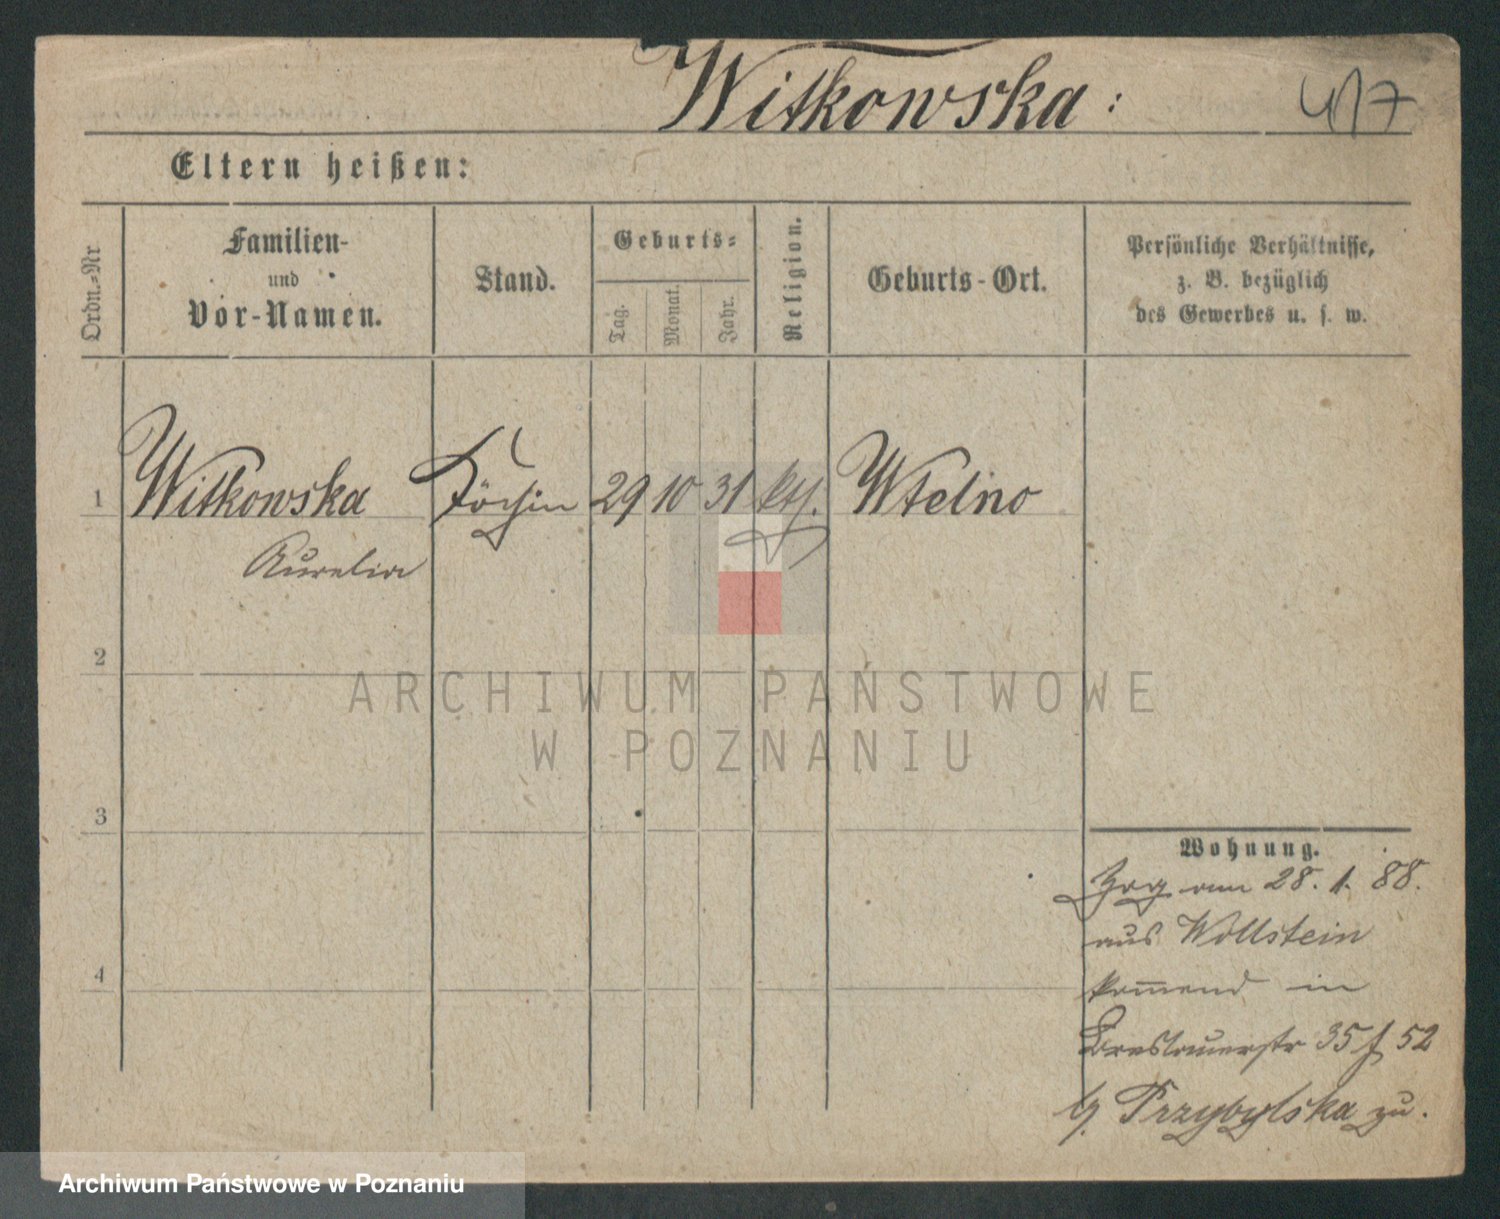 Witkowska :
417
Eltern heißen:
Ordn.-Nr
Familien-
und
Vor-Namen.
Stand.
Geburts-
Tag.
Monat.
Jahr.
Religion.
Geburts-Ort.
Persönliche Verhältnisse,
z. B. bezüglich
des Gewerbes u. s. w.
1 Witkowska Köchin 29 10 31 kth. Wtelno
Aurelia
2
ARCHIWUM PAŃSTWOWE
W POZNANIU
3
Wohnung.
Zog am 28. 1. 88.
aus Wollstein
kom̅end in
4
Breslauerstr 35 f 52
b/. Przybylska zu.
Archiwum Państwowe w Poznaniu